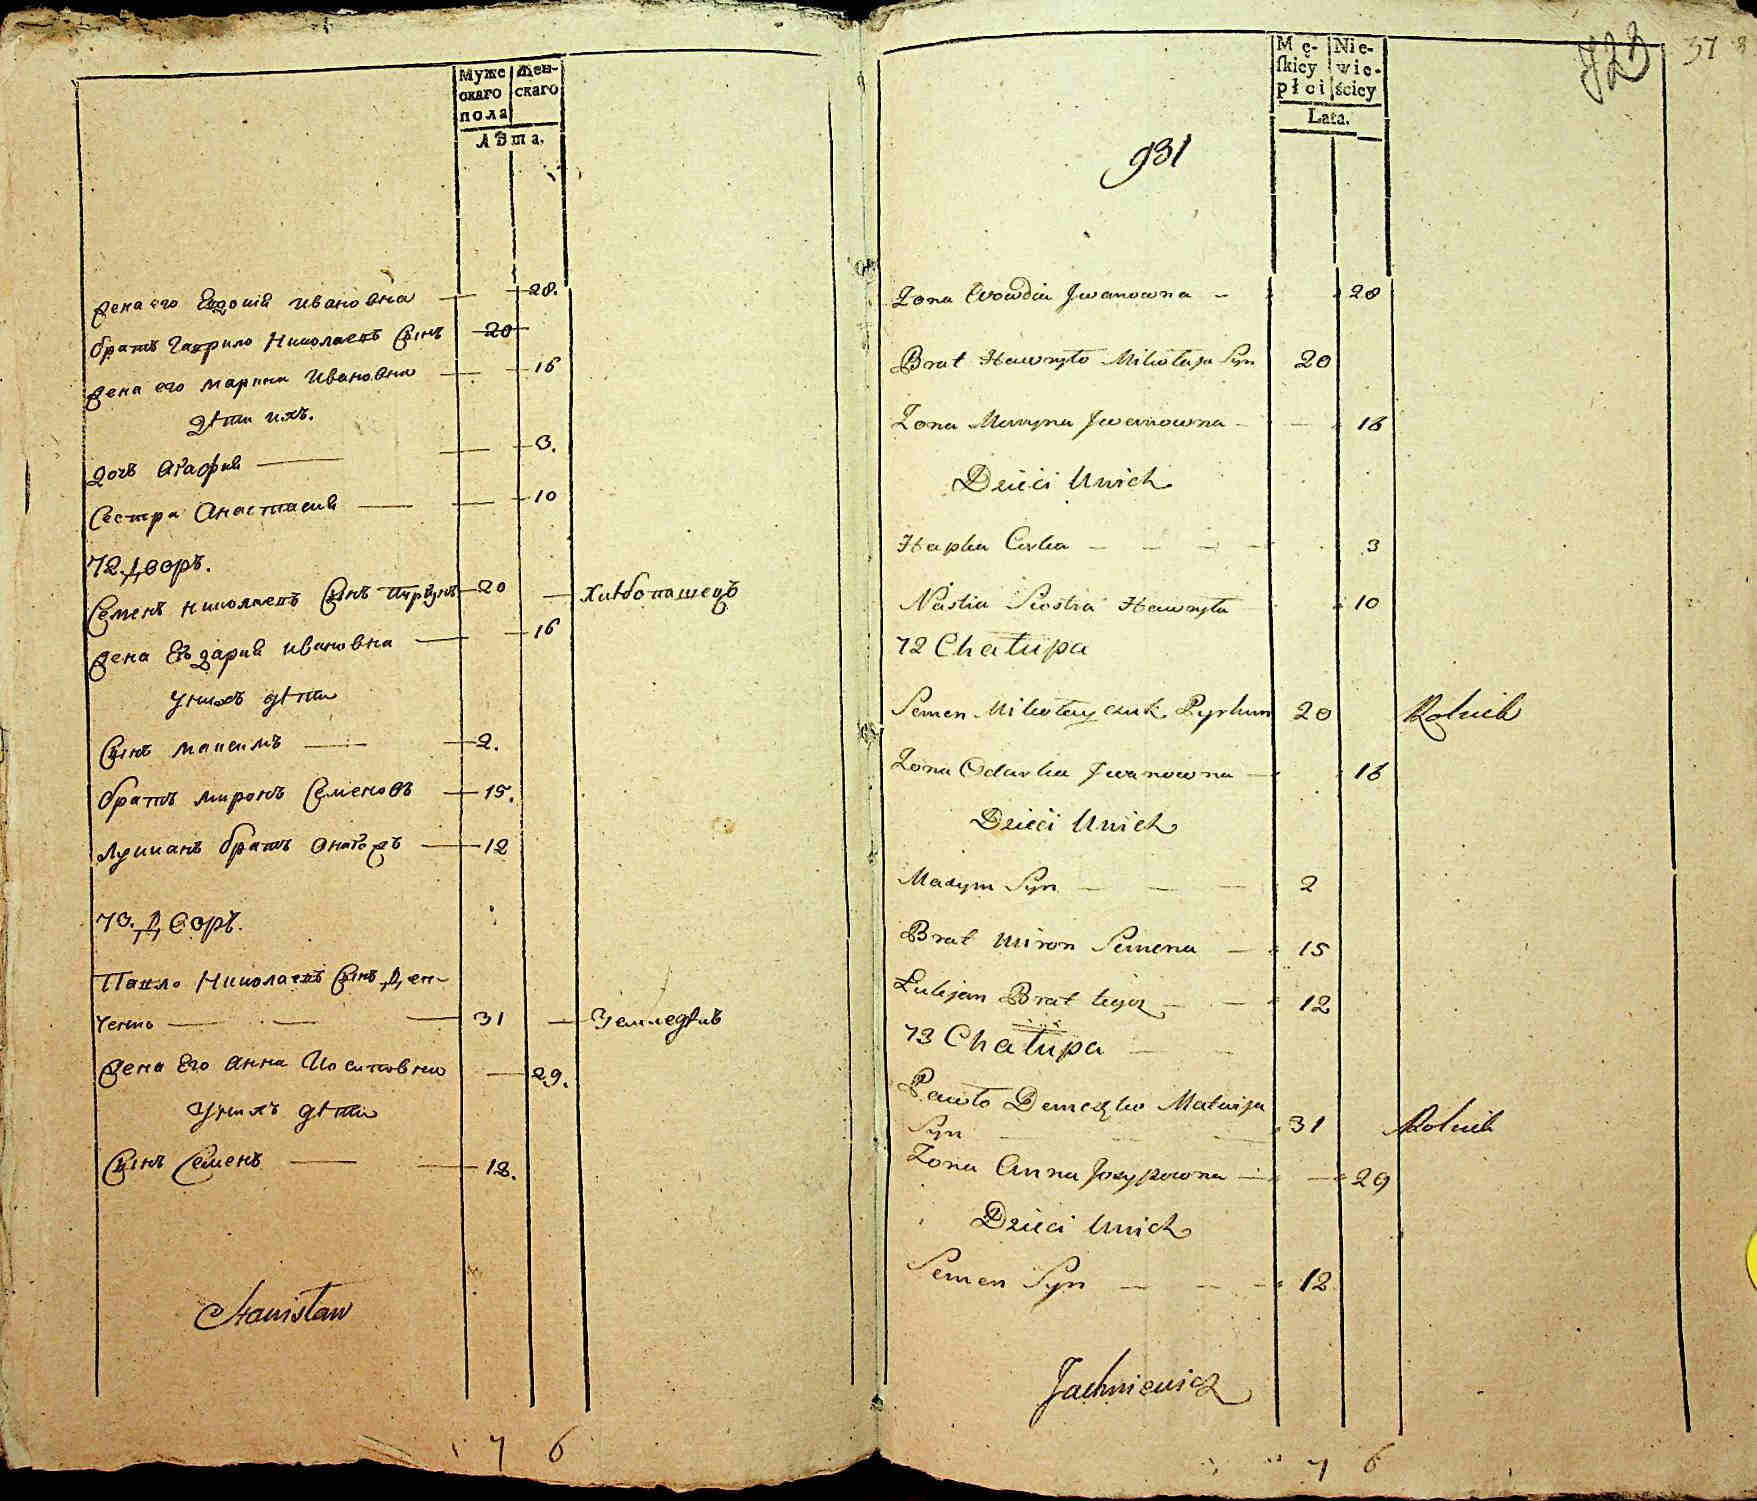 Муже
скаго
пола
Жен-
скаго
Лѣта.
Жена его Евдокія Ивановна — 28.
братъ Гаврило Николаевъ Сынъ 20
Жена его Марина Ивановна — 16
дѣти ихъ.
дочь Агафия — 3.
Сестра Анастасия — 10
72. Дворъ.
Семенъ Николаевъ Сынъ 20 — хлѣбопашецъ
Жена Ивановна — 16
у нихъ дѣти
Сынъ Максимъ — 2.
братъ Миронъ Семеновъ — 15.
Лукианъ братъ — 12
73. Дворъ.
Павло Николаевъ Сынъ Ден-
31 — Земледѣлъ
Жена Его Анна Иосиповна — 29.
у нихъ дѣти
Сынъ Семенъ — 12.
Stanisław
7 6
Mę-
skiey
płci
Nie-
wie-
ściey
Lata.
723
37
931
Żona Ewdokia Jwanowna - 28
Brat Hawryło Mikołaja Syn 20
Żona Maryna Jwanowna - 16
Dzieci Unich
Hapka Curka - 3
Nastia Siostra Hawryła 10
72 Chałupa
Semen Mikołayczuk Pyrkun 20 Rolnik
Żona Odarka Jwanowna - 16
Dzieci Unich
Maxym Syn - 2
Brat Miron Semena - 15
Łukjan Brat tegoż - 12
73 Chałupa
Pawło Demczko Matwija
Syn 31 Rolnik
Żona Anna Jozypowna - 29
Dzieci Unich
Semen Syn - 12
Jachniewicz
7 6